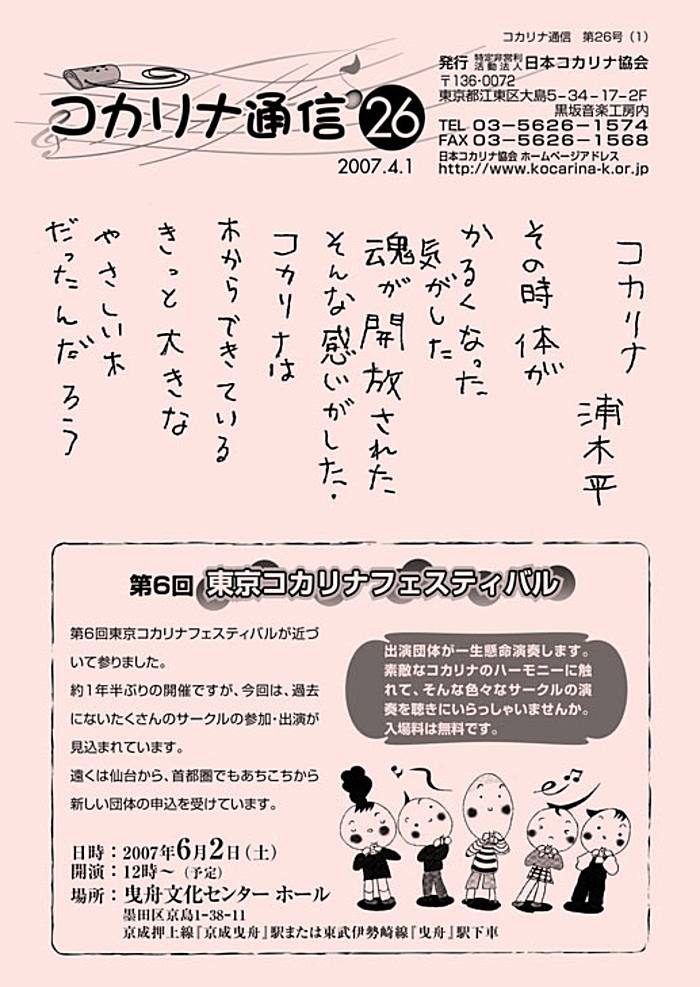 コカリナ通信 第26号（1）
コカリナ通信 26
2007.4.1
発行 特定非営利活動法人 日本コカリナ協会
〒136-0072
東京都江東区大島5－34－17－2F
黒坂音楽工房内
TEL 03－5626－1574
FAX 03－5626－1568
日本コカリナ協会 ホームページアドレス
http://www.kocarina-k.or.jp
コカリナ
浦木平
その時 体が
かるくなった
気がした
魂が開放された
そんな感じがした.
コカリナは
木からできている
きっと大きな
やさしい木
だったんだろう
第6回 東京コカリナフェスティバル
第6回東京コカリナフェスティバルが近づ
いて参りました。
約1年半ぶりの開催ですが、今回は、過去
にないたくさんのサークルの参加・出演が
見込まれています。
遠くは仙台から、首都圏でもあちこちから
新しい団体の申込を受けています。
出演団体が一生懸命演奏します。
素敵なコカリナのハーモニーに触
れて、そんな色々なサークルの演
奏を聴きにいらっしゃいませんか。
入場料は無料です。
日時：2007年6月2日（土）
開演：12時～（予定）
場所：曳舟文化センター ホール
墨田区京島1-38-11
京成押上線『京成曳舟』駅または東武伊勢崎線『曳舟』駅下車